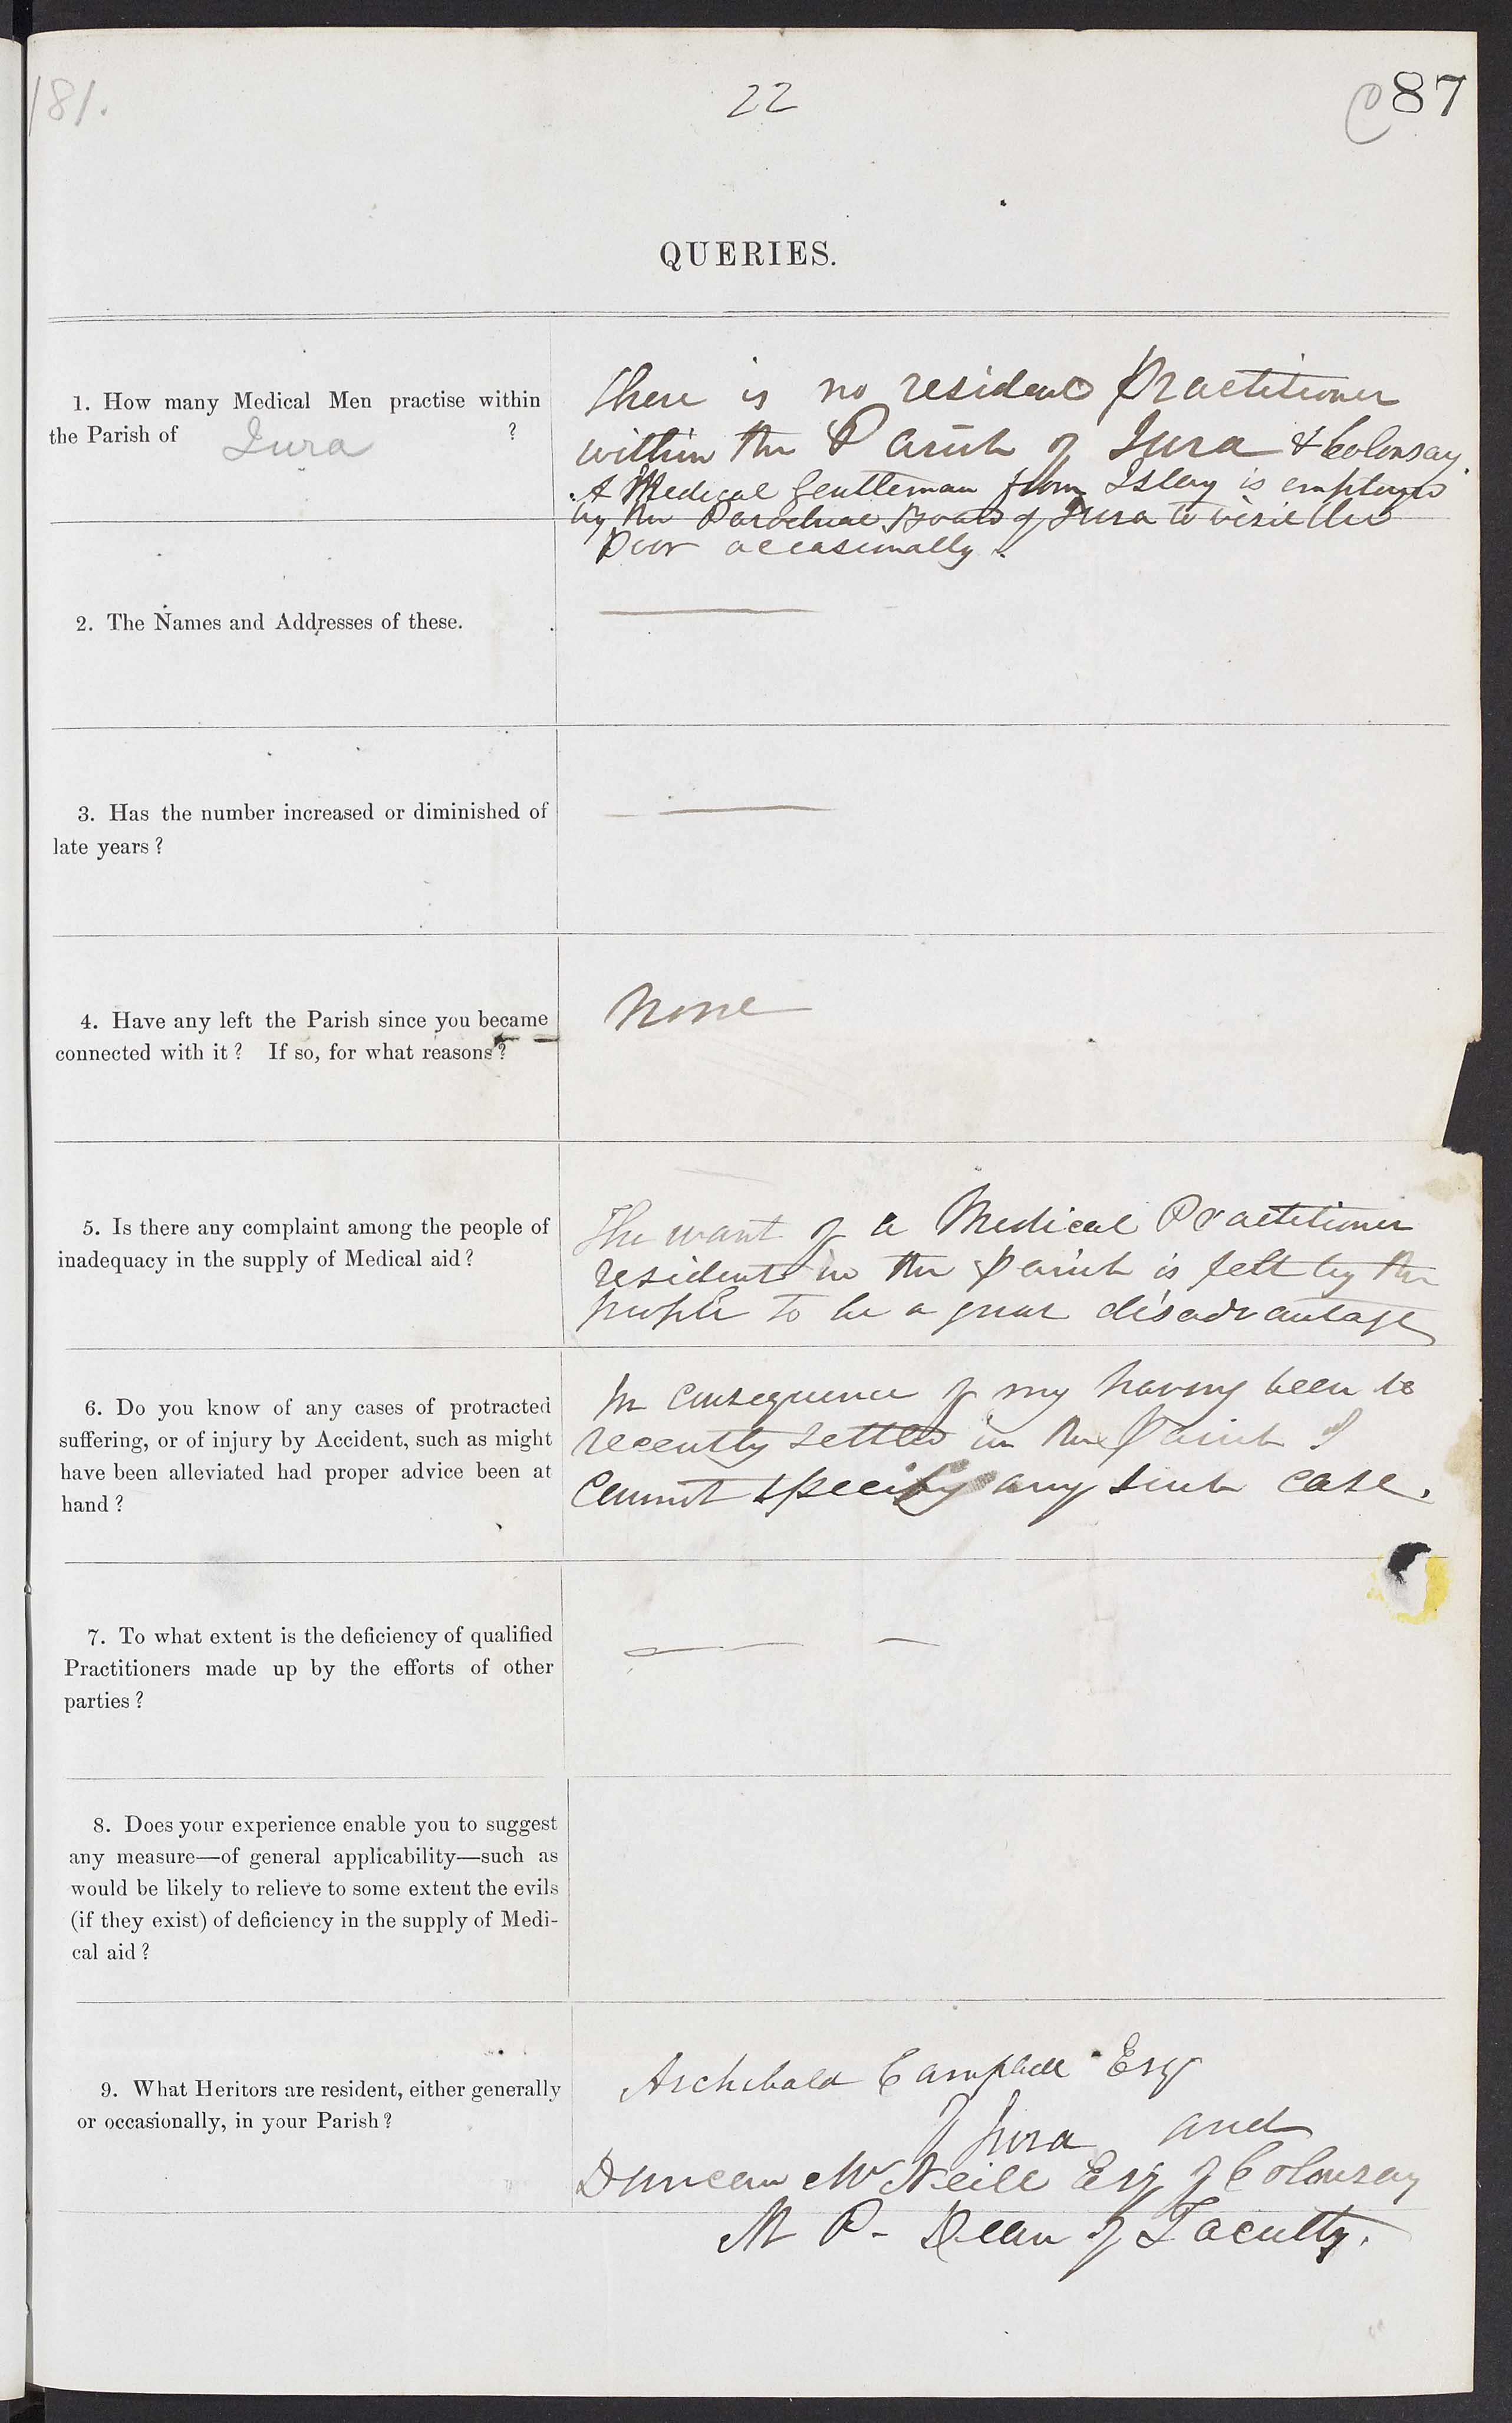 181.
22
C 87
QUERIES.
1. How many Medical Men practise within
the Parish of Jura ?
There is no resident Practitioner
within the Parish of Jura & Colonsay.
A Medical Gentleman from Islay is employed
by the Parochial Board of Jura to visit the
Poor occasionally.
2. The Names and Addresses of these.
3. Has the number increased or diminished of
late years ?
4. Have any left the Parish since you became
connected with it ? If so, for what reasons ?
None
5. Is there any complaint among the people of
inadequacy in the supply of Medical aid ?
The want of a Medical Practitioner
resident in the Parish is felt by the
people to be a great disadvantage
6. Do you know of any cases of protracted
suffering, or of injury by Accident, such as might
have been alleviated had proper advice been at
hand ?
In consequence of my having been so
recently settled in the Parish I
Cannot specify any such case.
7. To what extent is the deficiency of qualified
Practitioners made up by the efforts of other
parties ?
8. Does your experience enable you to suggest
any measure—of general applicability—such as
would be likely to relieve to some extent the evils
(if they exist) of deficiency in the supply of Medi-
cal aid ?
9. What Heritors are resident, either generally
or occasionally, in your Parish ?
Archibald Campbell Esq
of Jura and
Duncan McNeill Esq of Colonsay
M P - Dean of Faculty.